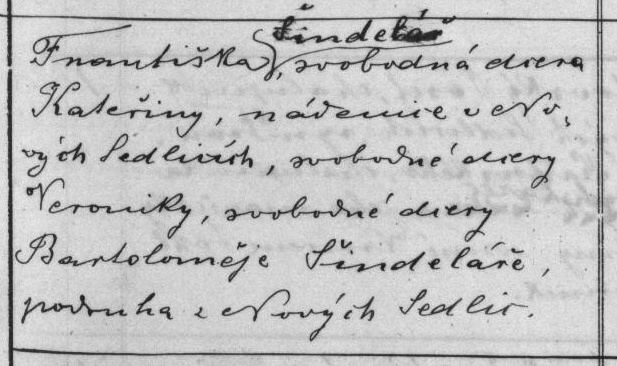 Šindelář
Františka, svobodná dcera
Kateřiny, nádenice v No-
vých Sedlicích, svobodné dcery
Veroniky, svobodné dcery
Bartoloměje Šindeláře,
podruha z Nových Sedlic.